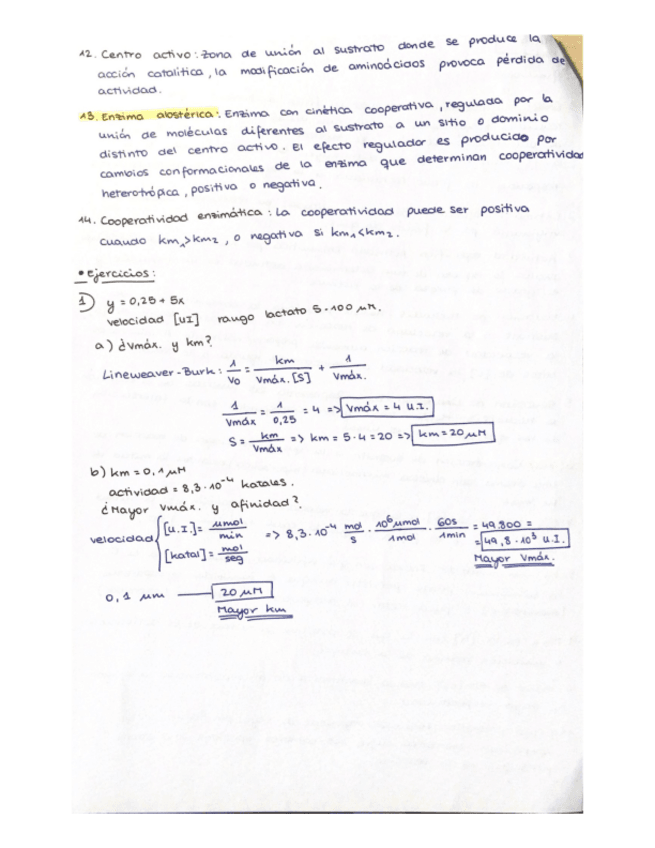 12. Centro activo: zona de unión al sustrato donde se produce la
acción catalítica, la modificación de aminoácidos provoca pérdida de
actividad.
13. Enzima alostérica: Enzima con cinética cooperativa, regulada por la
unión de moléculas diferentes al sustrato a un sitio o dominio
distinto del centro activo. El efecto regulador es producido por
cambios conformacionales de la enzima que determinan cooperatividad
heterotrópica, positiva o negativa.
14. Cooperatividad enzimática: La cooperatividad puede ser positiva
cuando km₁>km₂, o negativa si km₁<km₂.
• Ejercicios:
1) y = 0,25 + 5x
velocidad [UI] rango lactato 5-100 μM.
a) ¿Vmáx. y km?
Lineweaver-Burk: 1/V₀ = km/Vmáx.[S] + 1/Vmáx.
1/Vmáx = 1/0,25 = 4 => Vmáx = 4 U.I.
S = km/Vmáx => km = 5·4 = 20 => km = 20 μM
b) km = 0,1 μM
actividad = 8,3·10⁻⁴ katales.
¿Mayor Vmáx. y afinidad?
velocidad { [U.I.] = μmol/min => 8,3·10⁻⁴ mol/s · 10⁶ μmol/1mol · 60s/1min = 49.800 =
= 49,8·10³ U.I.
[katal] = mol/seg
Mayor Vmáx.
0,1 μm — 20 μM
Mayor km